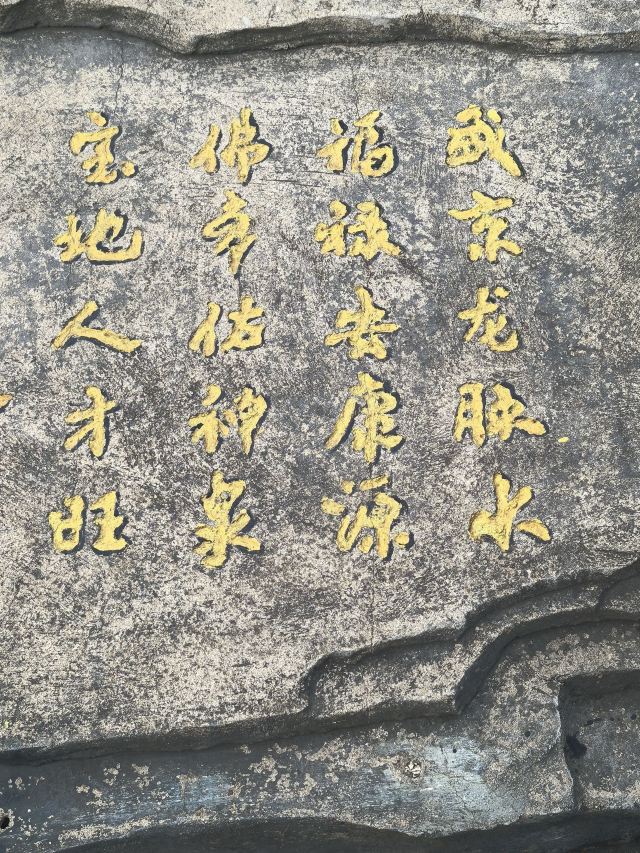 盛京龙脉水
福禄安康源
佛神泉
宝地人才旺